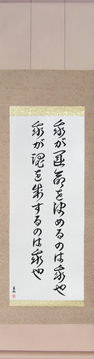 我が運命を決めるのは我也
我が魂を制するのは我也